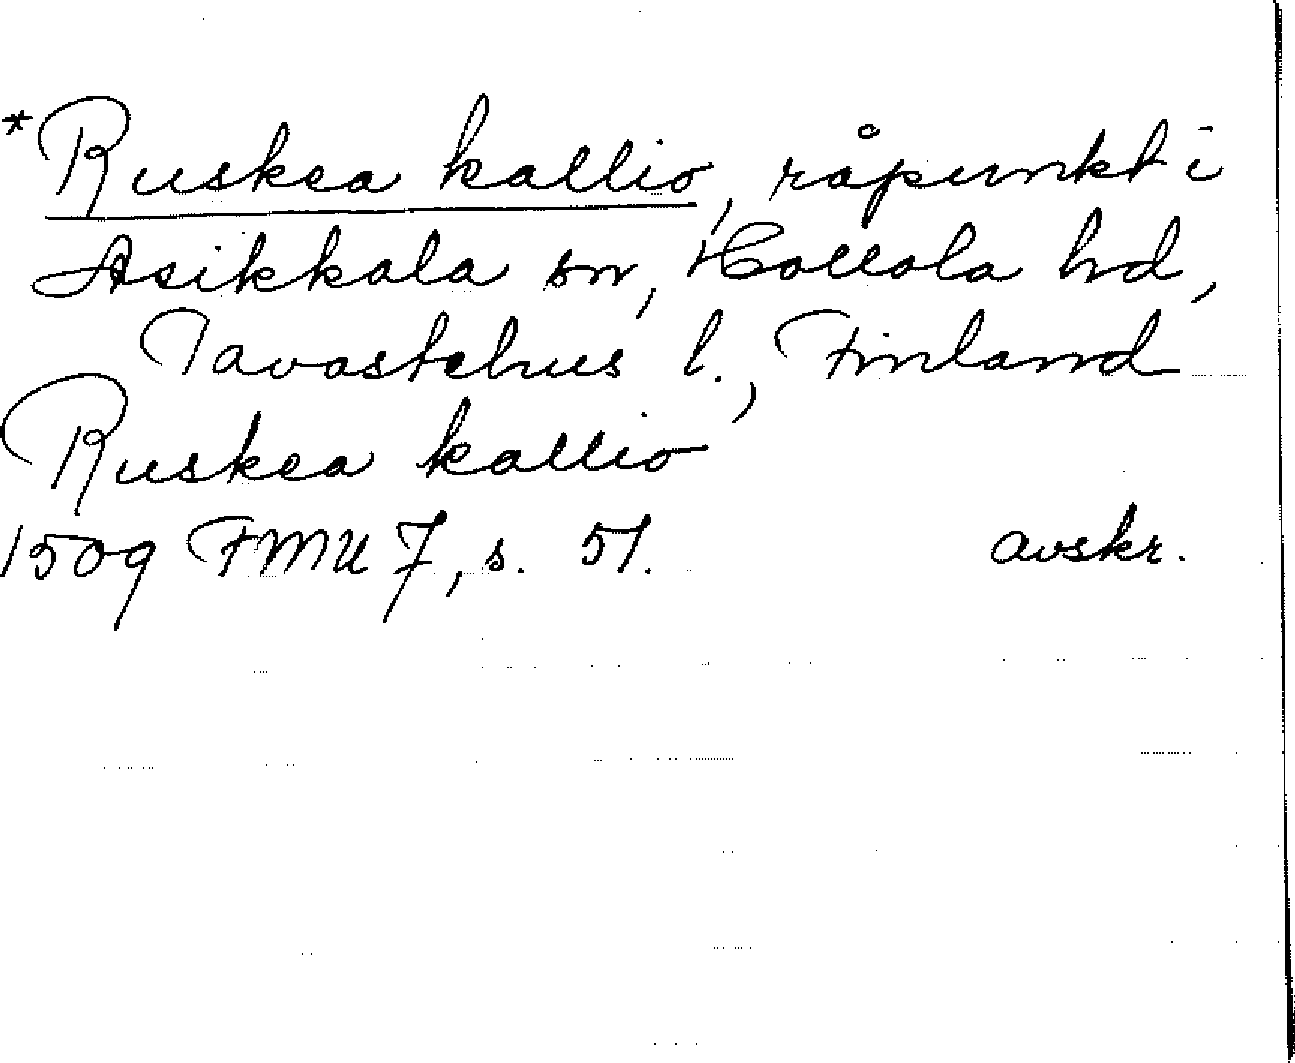 *Ruskea kallio, råpunkt i
Asikkala sn, Hollola hd,
Tavastehus l., Finland
Ruskea kallio
1509 FMU 7, s. 51. avskr.